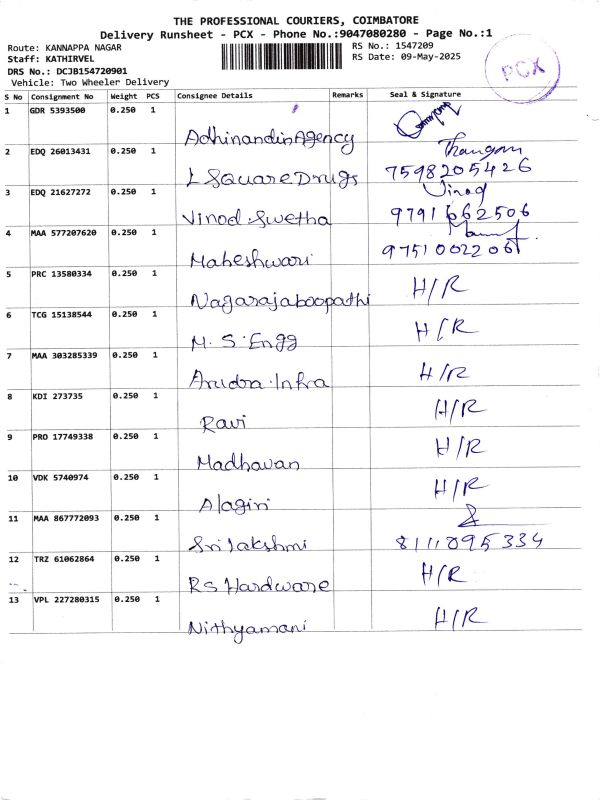 THE PROFESSIONAL COURIERS, COIMBATORE
Delivery Runsheet - PCX - Phone No.:9047080280 - Page No.:1
Route: KANNAPPA NAGAR
RS No.: 1547209
Staff: KATHIRVEL
RS Date: 09-May-2025
DRS No.: DCJB154720901
Vehicle: Two Wheeler Delivery
PCX
S No Consignment No Weight PCS Consignee Details Remarks Seal & Signature
1 GDR 5393500 0.250 1
Adhinandin Agency
2 EDQ 26013431 0.250 1 Thangam
L Square Drugs 7598205426
3 EDQ 21627272 0.250 1 Vinod
Vinod Swetha 9791662506
4 MAA 577207620 0.250 1
Maheshwari 9751002206
5 PRC 13580334 0.250 1 H/R
Nagarajaboopathi
6 TCG 15138544 0.250 1 H/R
M. S. Engg
7 MAA 303285339 0.250 1 H/R
Arudra Infra
8 KDI 273735 0.250 1 H/R
Ravi
9 PRO 17749338 0.250 1 H/R
Madhavan
10 VDK 5740974 0.250 1 H/R
Alagiri
11 MAA 867772093 0.250 1
Sri lakshmi 8111095334
12 TRZ 61062864 0.250 1 H/R
RS Hardware
13 VPL 227280315 0.250 1 H/R
Nithyamani